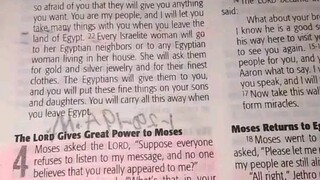 so afraid of you that they will give you anything
you want. You are my people, and I will let you
take many things with you when you leave the
land of Egypt. 22 Every Israelite woman will go
to her Egyptian neighbors or to any Egyptian
woman living in her house. She will ask them
for gold and silver jewelry and for their finest
clothes. The Egyptians will give them to you,
and you will put these fine things on your sons
and daughters. You will carry all this away when
you leave Egypt.
The LORD Gives Great Power to Moses
4 Moses asked the LORD, "Suppose everyone
refuses to listen to my message, and no one
believes that you really appeared to me?"
said:
What about your b
I know he is a good s
his way here to visit yo
to see you again.
people for you, and y
Aaron what to say. I
you speak, and I will
17 Now take this wal
form miracles.
Moses Returns to Eg
18 Moses went to
asked, "Please let me
my people are still ali
"All right," Jethro